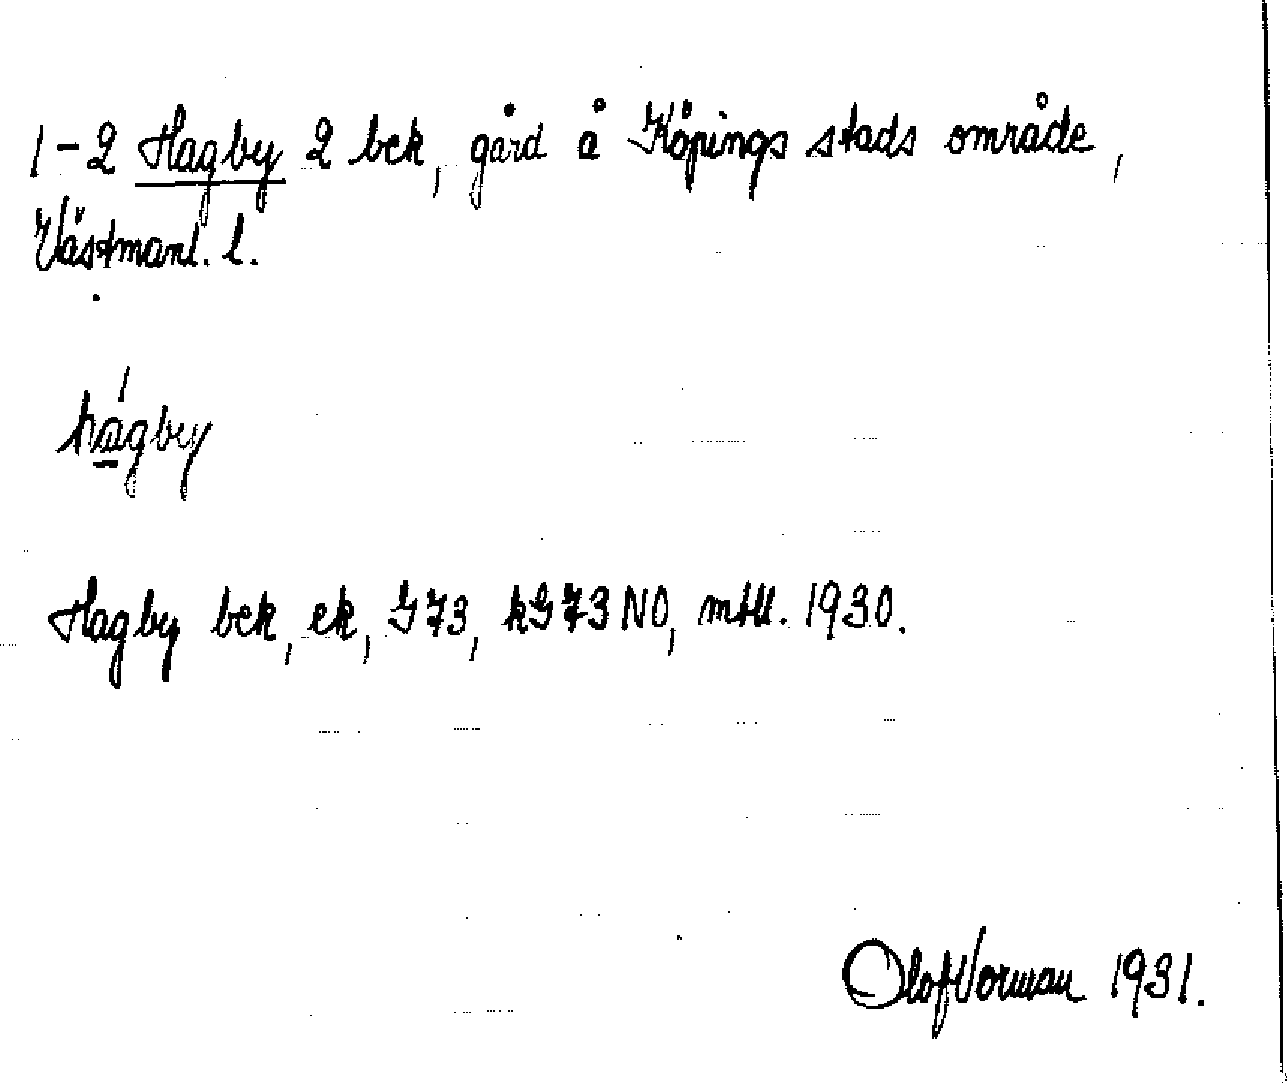 1-2 Hagby 2 bek, gård å Köpings stads område,
Västmanl. l.
hágby
Hagby bek, ek, G73, kG73NO, mtll. 1930.
Olof Vorman 1931.